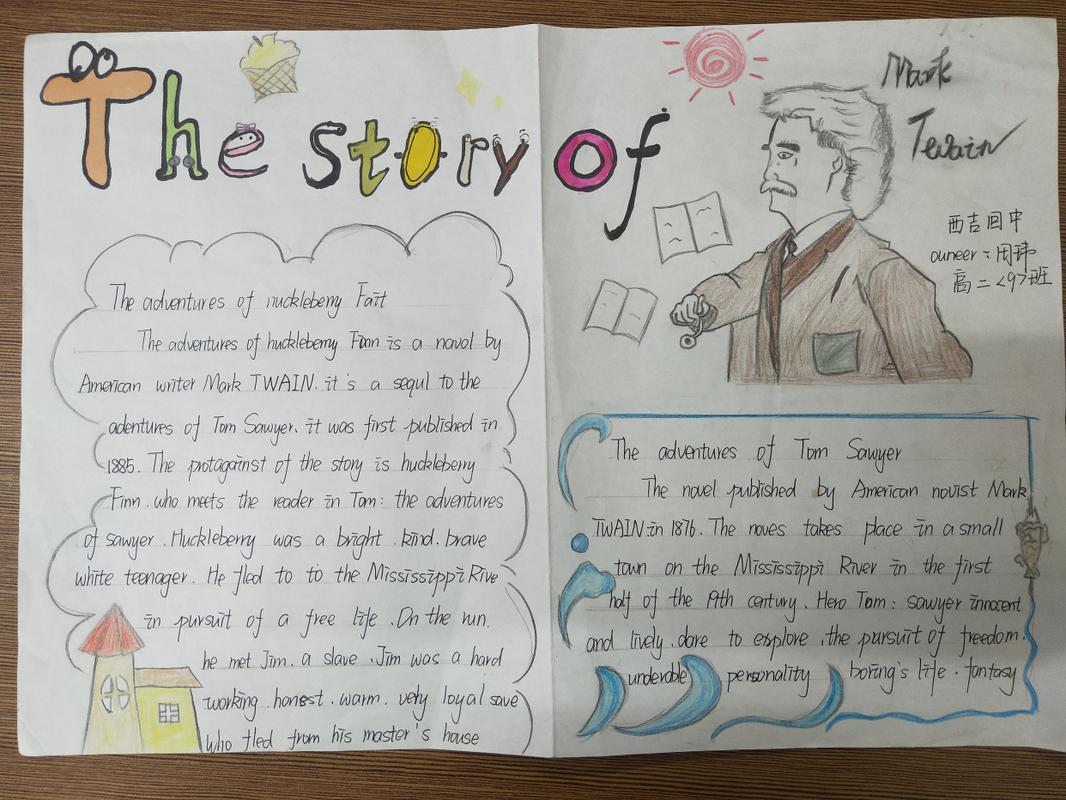 The story of
Mark
Twain
西吉回中
ouneer：周玮
高二<9>班
The adventures of huckleberry Fait
The adventures of huckleberry Finn is a navol by
American writer Mark TWAIN. it's a sequl to the
adentures of Tom Sawyer. it was first published in
1885. The protagainst of the story is huckleberry
Finn. who meets the reader in Tom: the adventures
of sawyer. Huckleberry was a bright. kind. brave
white teenager. He fled to to the Mississippi Rive
in pursuit of a free life. On the run.
he met Jim. a slave. Jim was a hard
working. honest. warm. very loyal save
who fled from his master's house
The adventures of Tom Sawyer
The novel published by American novist Mark
TWAIN in 1876. The noves takes place in a small
town on the Mississippi River in the first
half of the 19th century. Hero Tom: sawyer innocent
and lively. dare to explore. the pursuit of freedom.
underable personality boring's life. fantasy